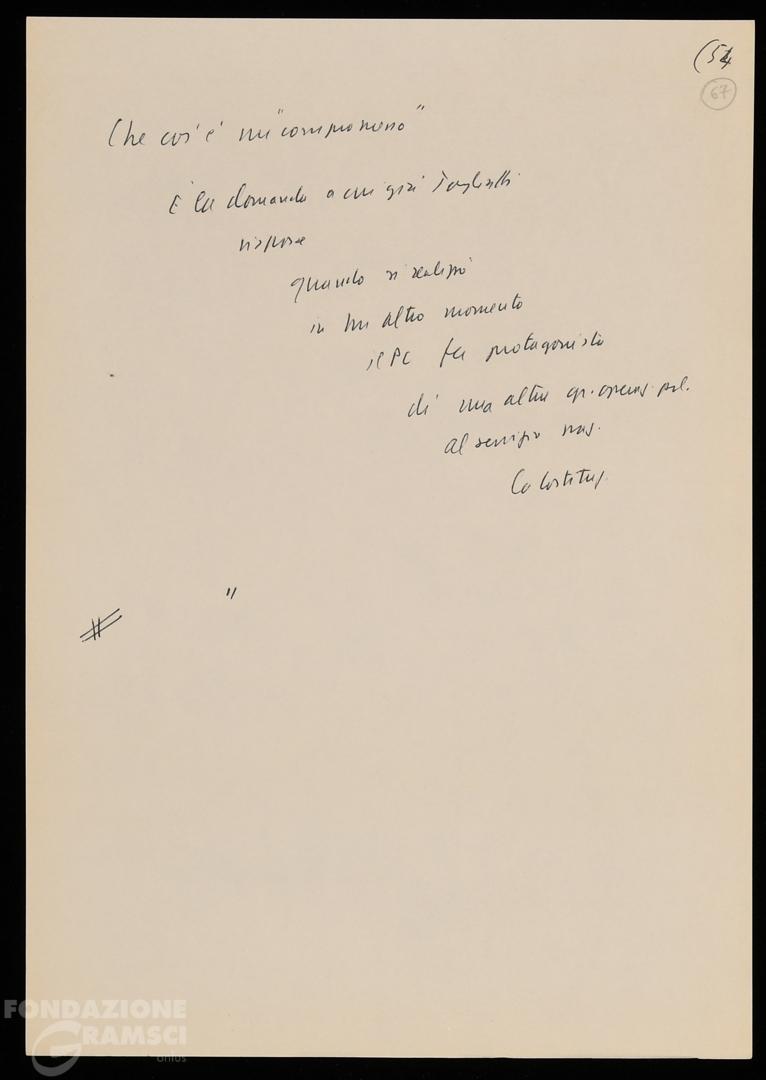 (54
67
Che cos'è un "compromesso"
È la domanda a cui già Togliatti
rispose
quando si realizzò
in un altro momento
il PC fu protagonista
di una altra gr. operaz. pol.
al servizio naz.
la Costituz.
"
FONDAZIONE
GRAMSCI
onlus